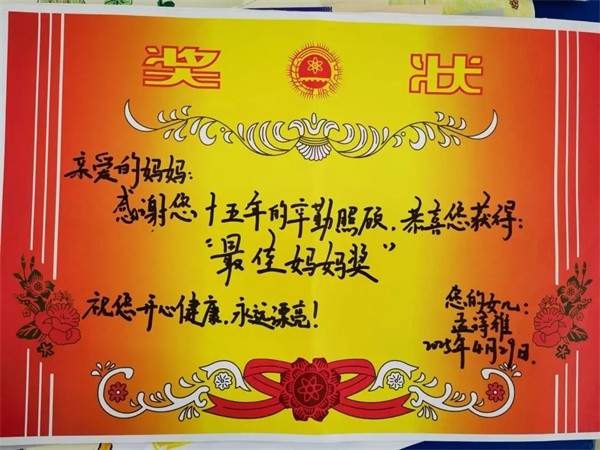 奖 状
亲爱的妈妈:
感谢您十五年的辛勤照顾,恭喜您获得:
“最佳妈妈奖”
祝您开心健康,永远漂亮!
您的女儿:
孟诗雅
2025年4月29日.